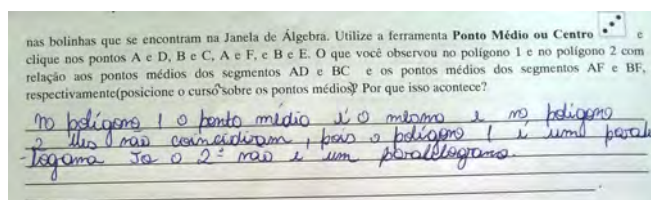 nas bolinhas que se encontram na Janela de Álgebra. Utilize a ferramenta Ponto Médio ou Centro e
clique nos pontos A e D, B e C, A e F, e B e E. O que você observou no polígono 1 e no polígono 2 com
relação aos pontos médios dos segmentos AD e BC e os pontos médios dos segmentos AF e BF,
respectivamente(posicione o curso sobre os pontos médios)? Por que isso acontece?
no polígono 1 o ponto médio é o mesmo e no polígono
2 eles não coincidiram, pois o polígono 1 é um paral
-logama Ja o 2º não é um paralelogramo.